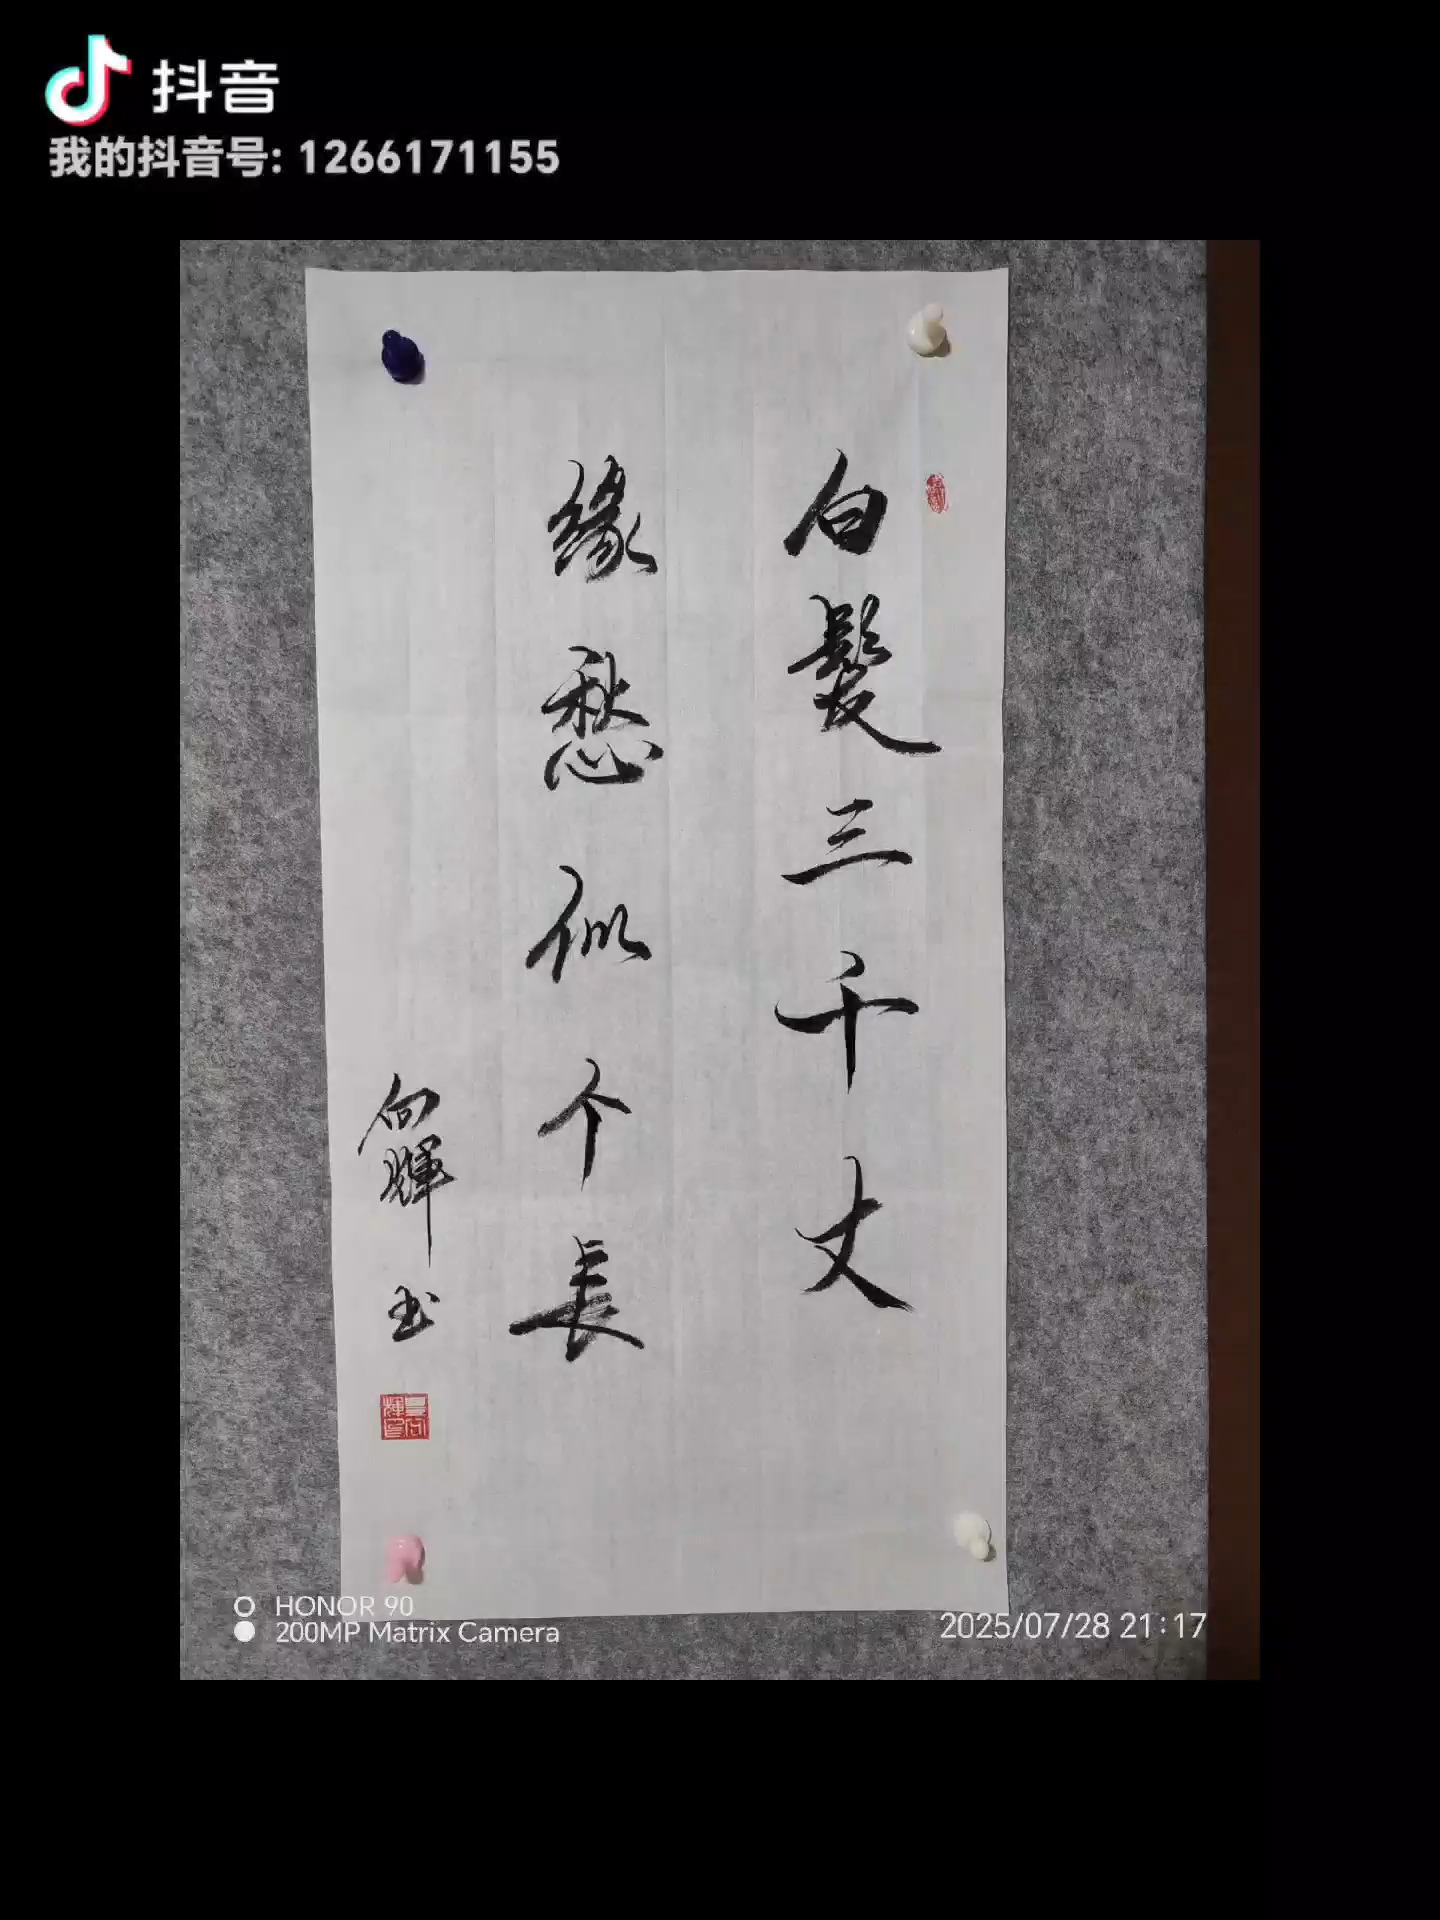 抖音
我的抖音号: 1266171155
白髮三千丈
緣愁似个長
向輝书
HONOR 90
200MP Matrix Camera
2025/07/28 21:17